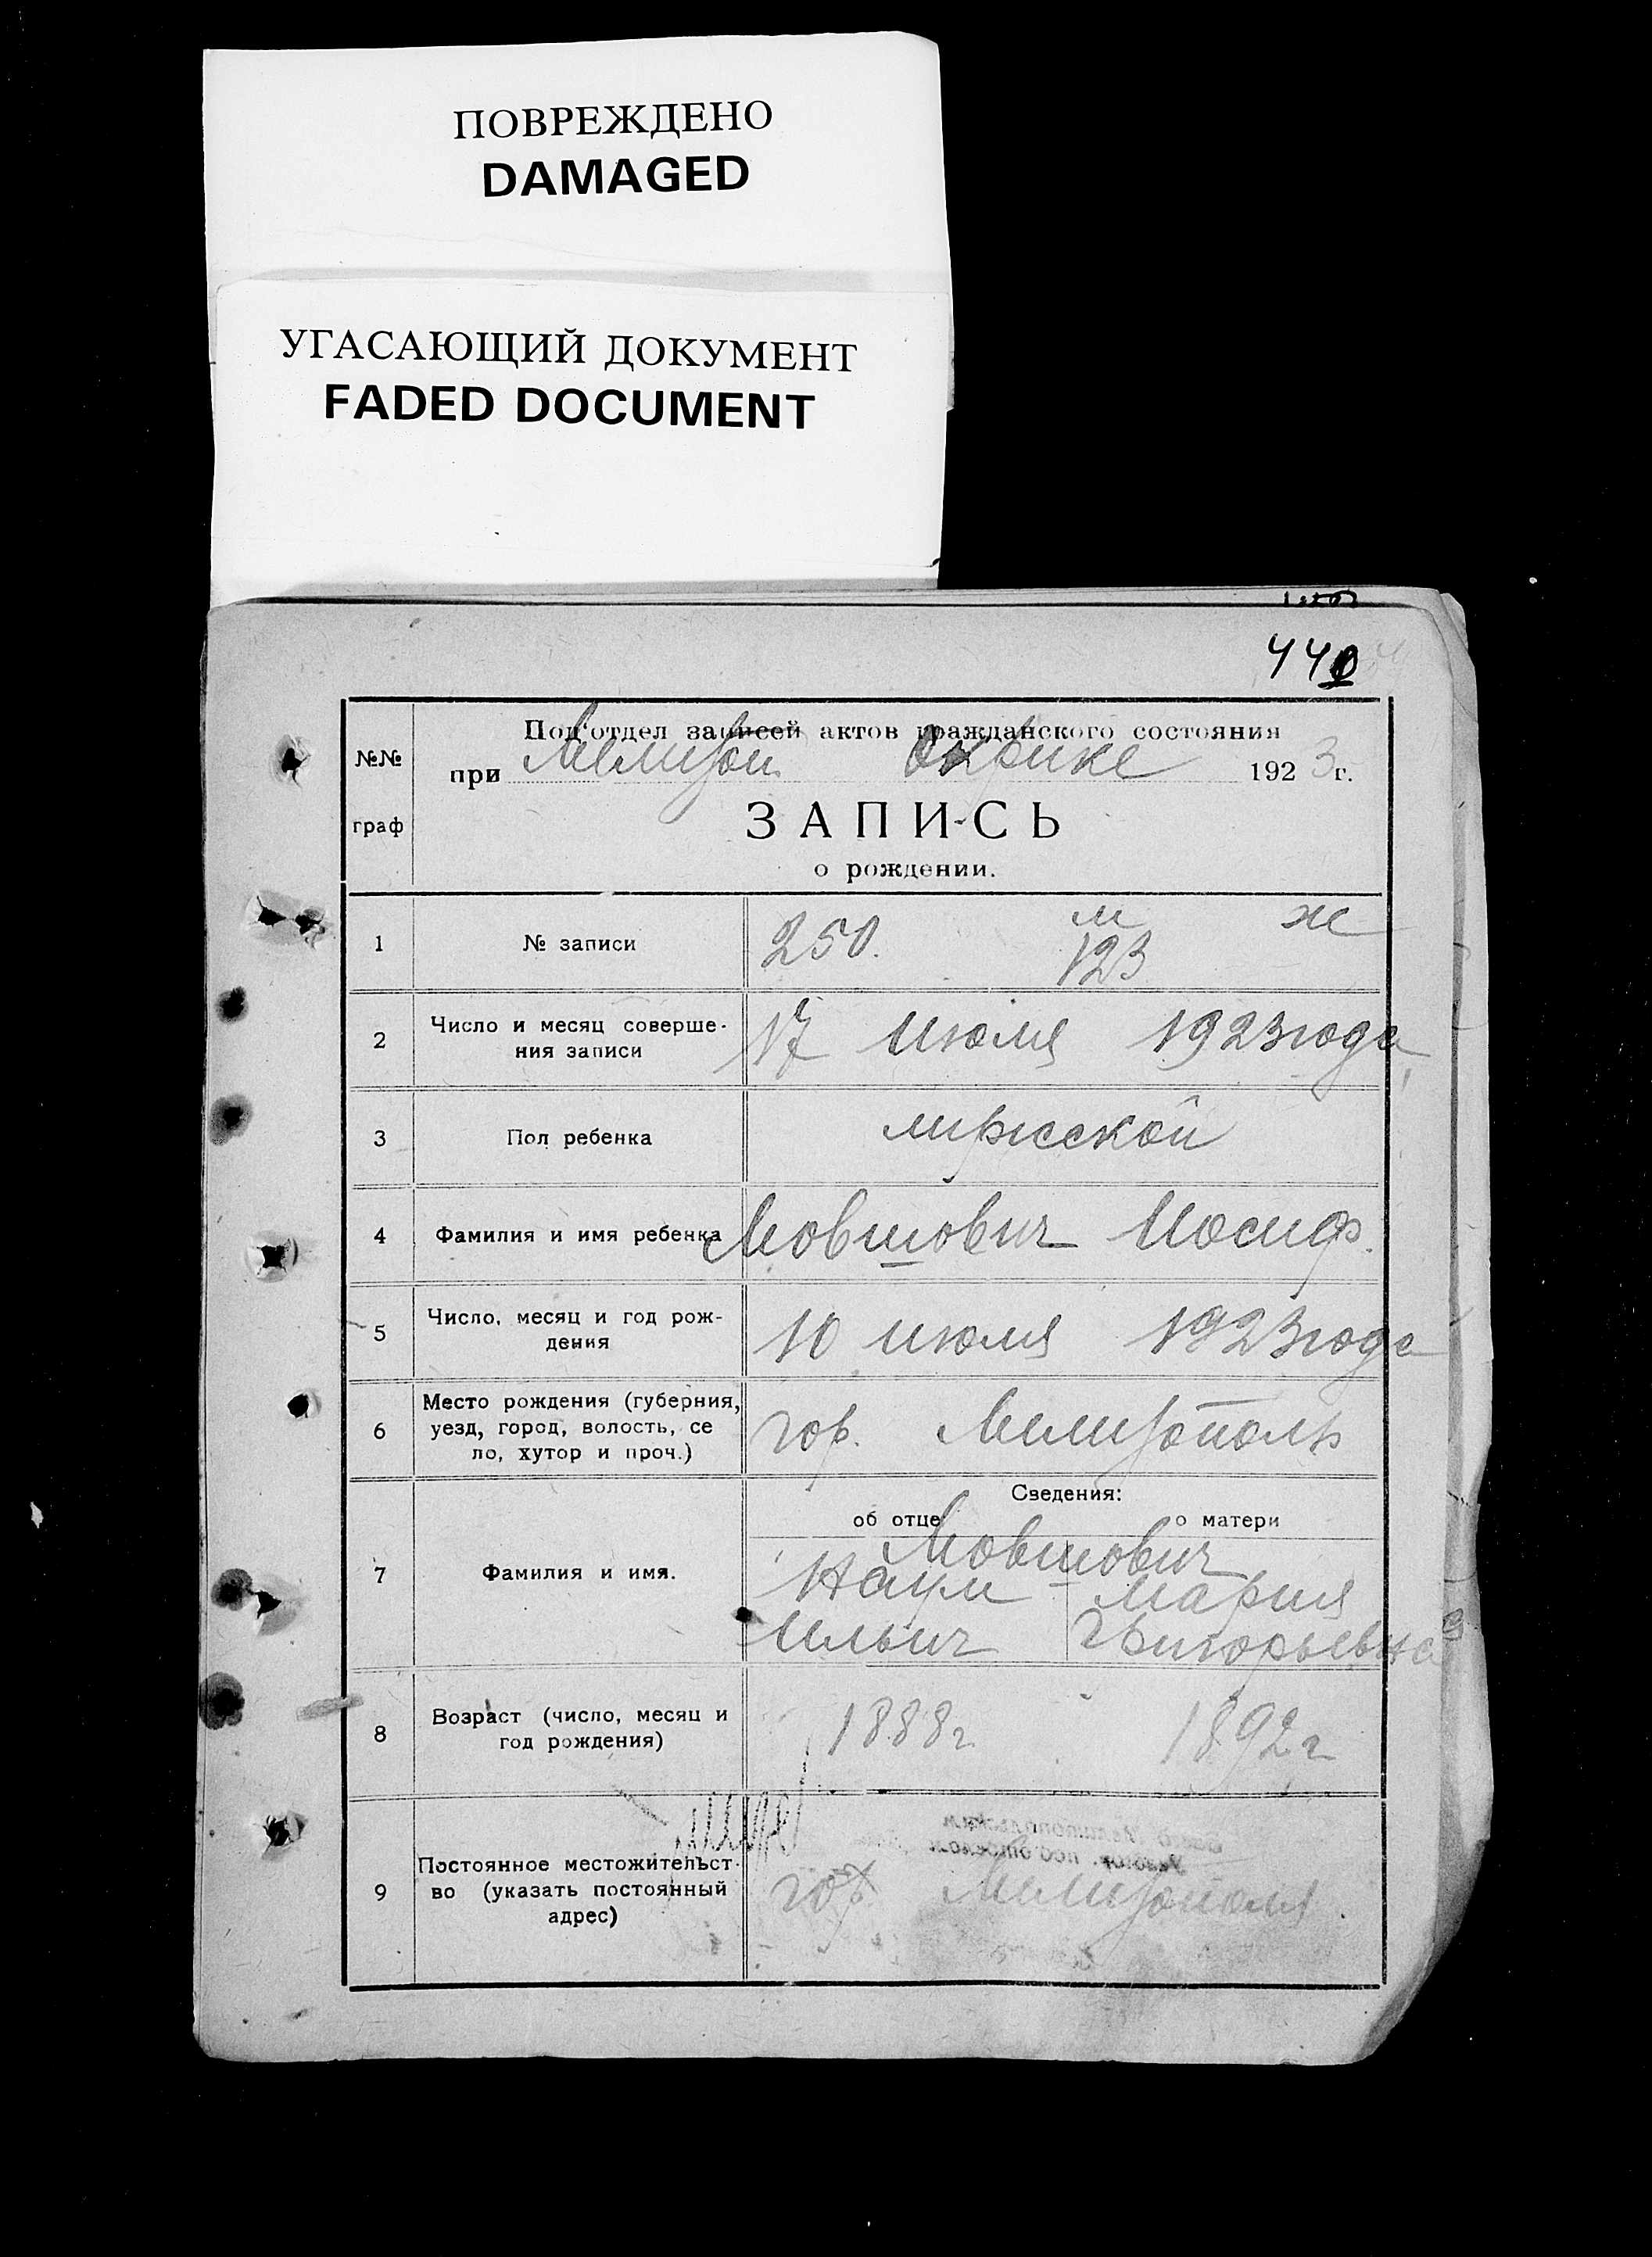 ПОВРЕЖДЕНО
DAMAGED
УГАСАЮЩИЙ ДОКУМЕНТ
FADED DOCUMENT
440
№№
граф
Под'отдел записей актов гражданского состояния
при Мелитоп. Окрике 1923 г.
ЗАПИСЬ
о рождении.
1 № записи 250. м 123 ж
2 Число и месяц соверше-
ния записи 17 июля 1923 года
3 Пол ребенка мужской
4 Фамилия и имя ребенка Мовшович Иосиф.
5 Число, месяц и год рож-
дения 10 июля 1923 года
6 Место рождения (губерния,
уезд, город, волость, се
ло, хутор и проч.) гор. Мелитополь
Сведения:
об отце о матери
Мовшович
7 Фамилия и имя. Наум Мария
Ильич Григорьевна
8 Возраст (число, месяц и
год рождения) 1888 г. 1892 г
9 Постоянное местожительст-
во (указать постоянный
адрес) гор. Мелитополь.